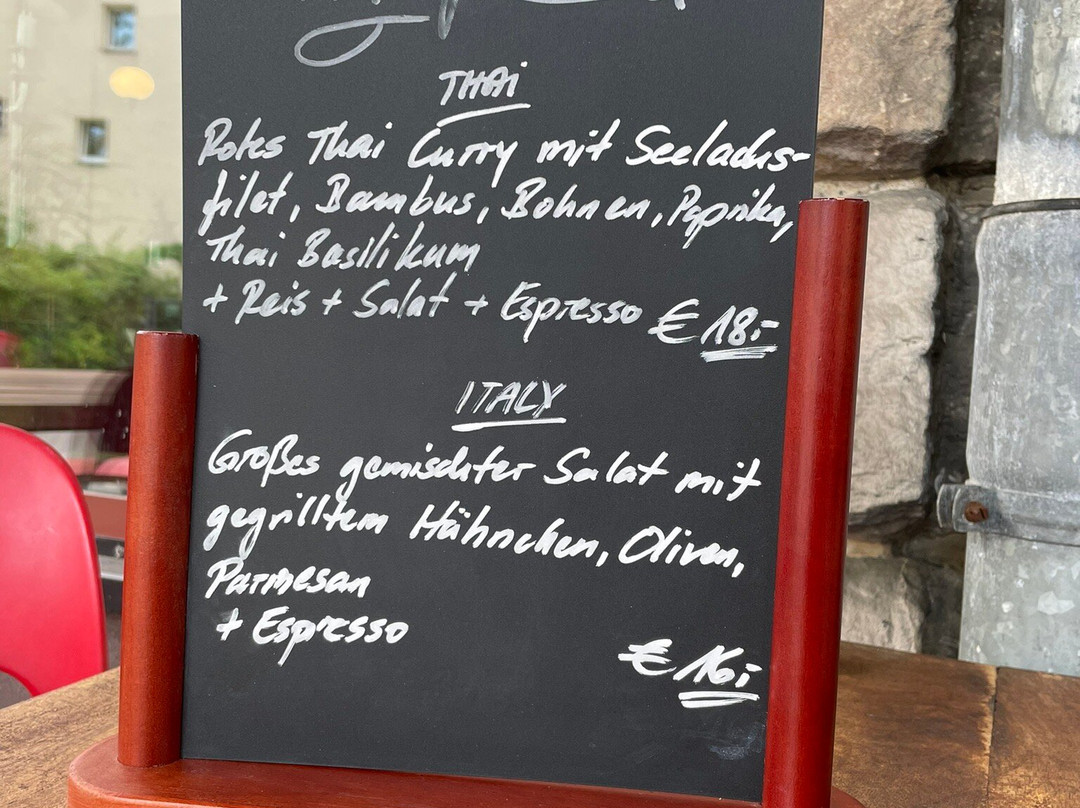 THAi
Rotes Thai Curry mit Seelachs-
filet, Bambus, Bohnen, Paprika,
Thai Basilikum
+ Reis + Salat + Espresso € 18.-
ITALY
Großes gemischter Salat mit
gegrilltem Hähnchen, Oliven,
Parmesan
+ Espresso
€ 16.-